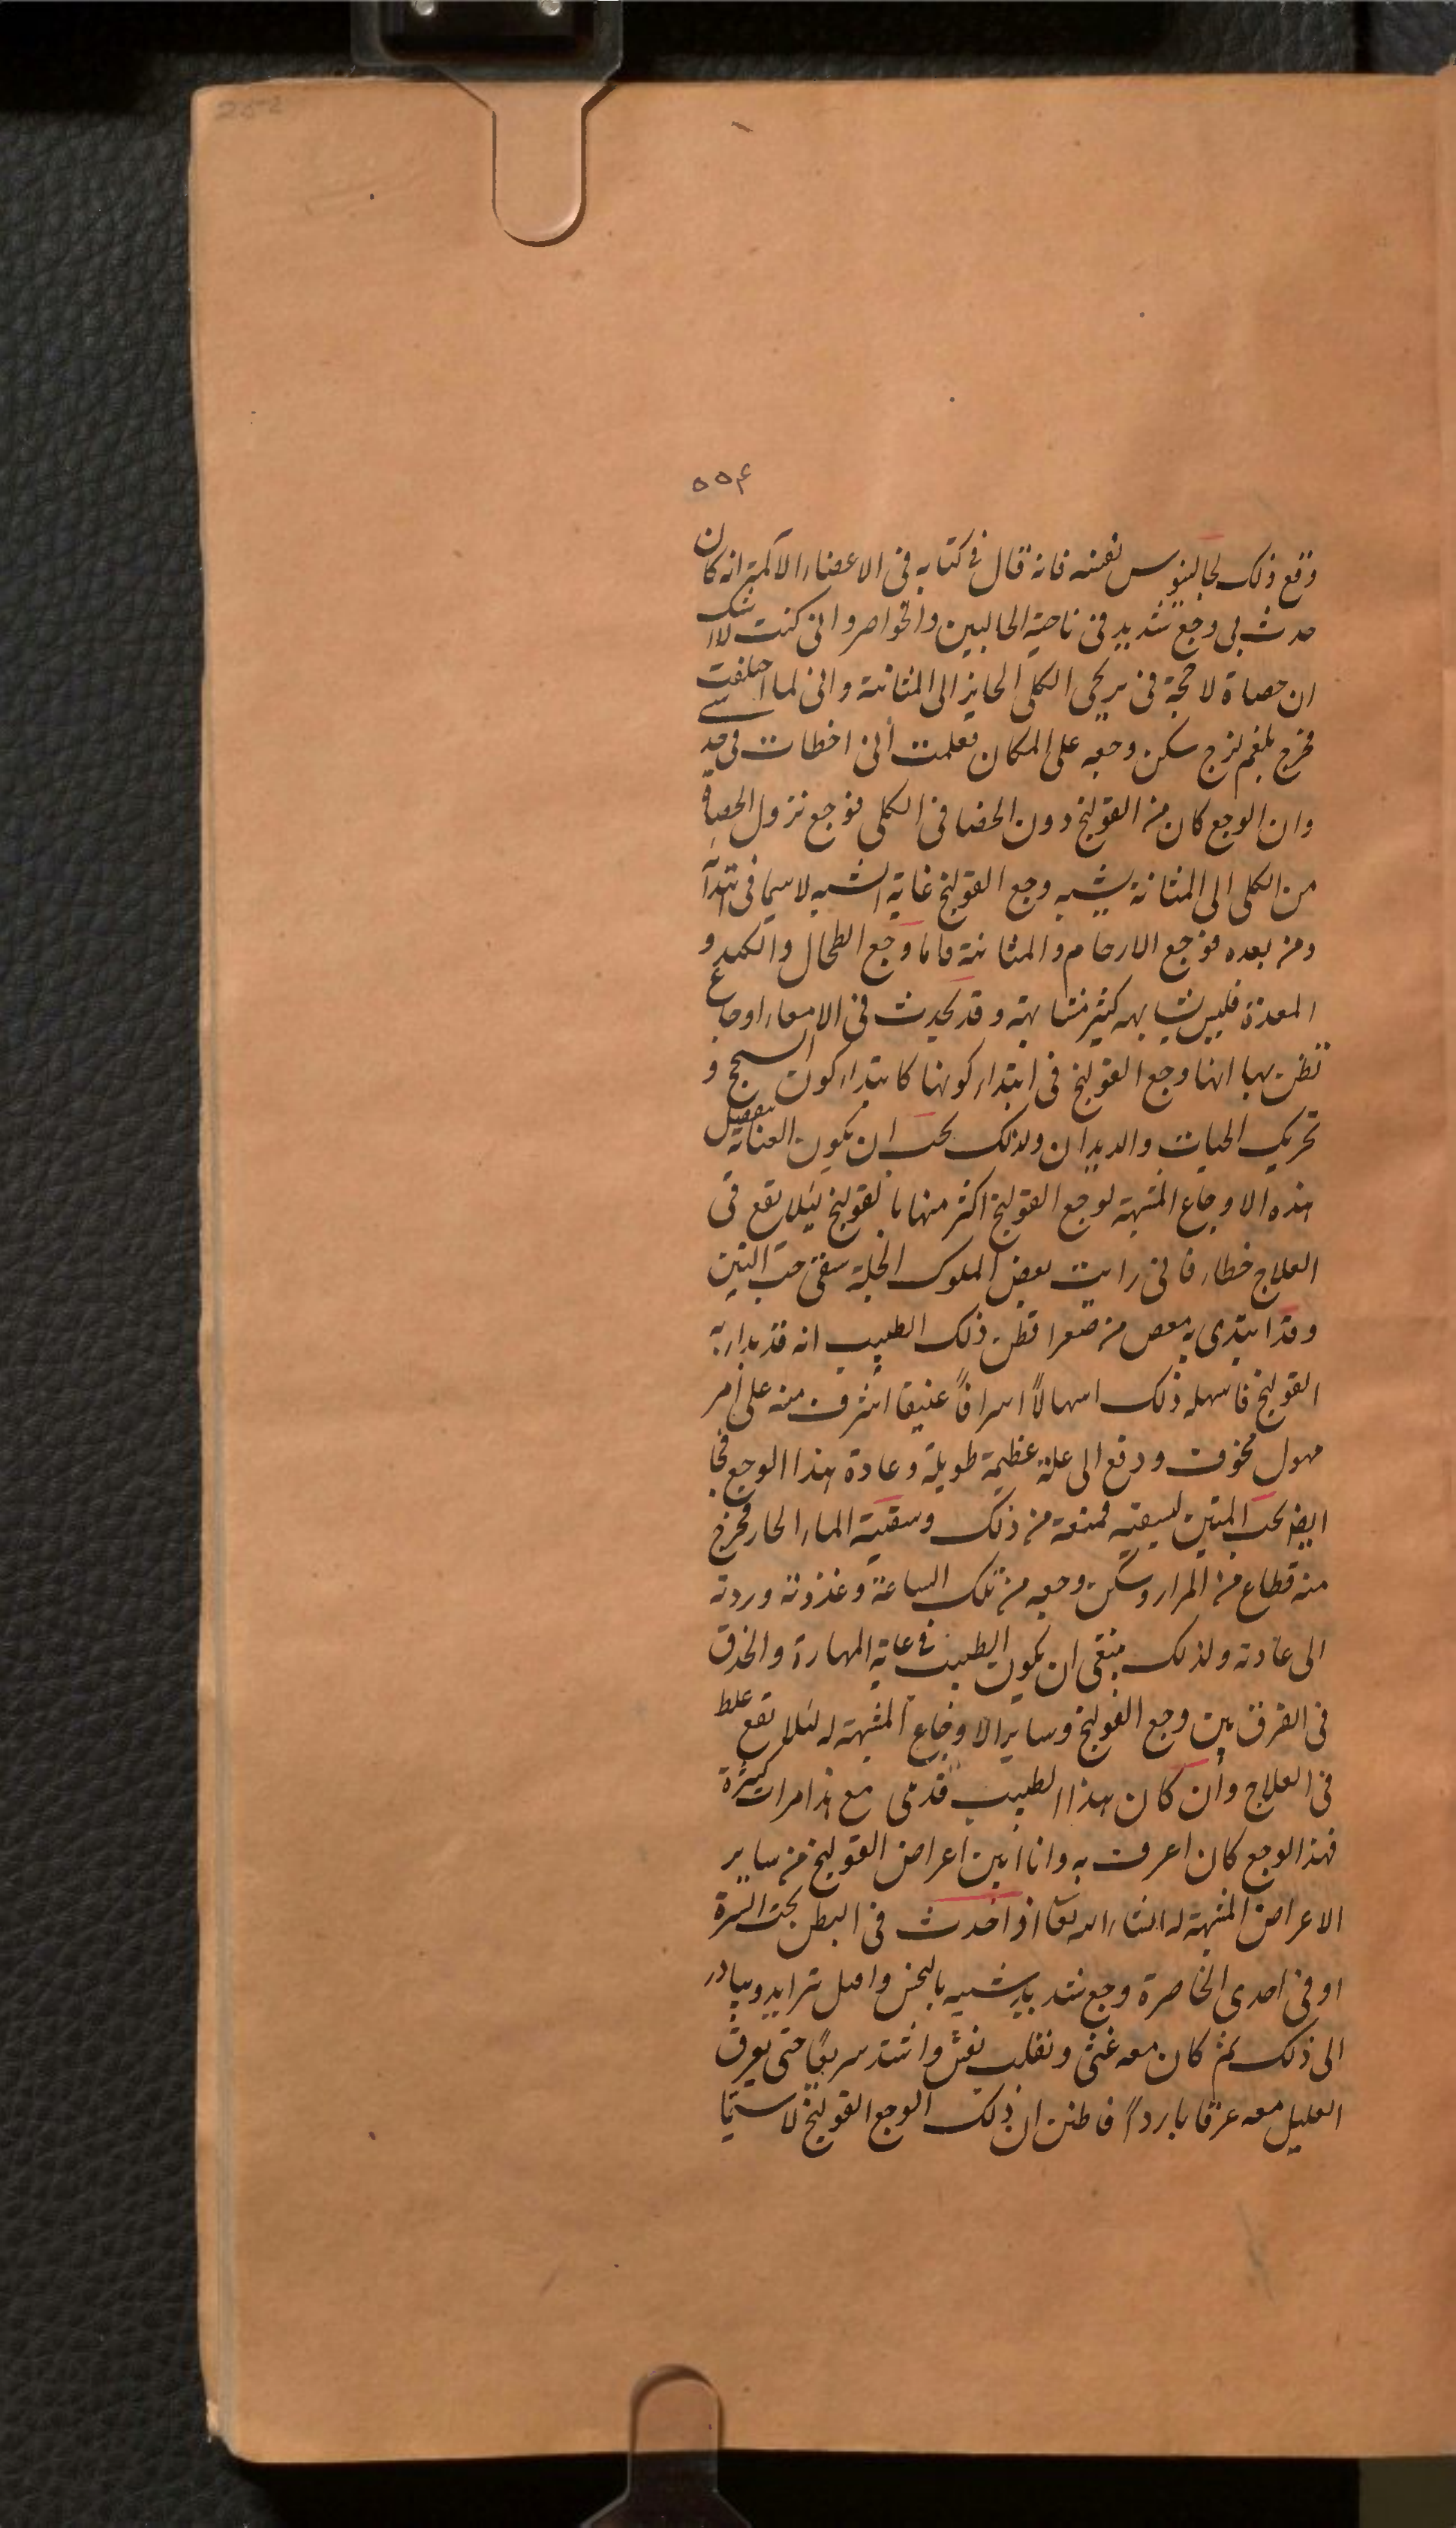 252
٥٥۴
وقع ذلك لجالينوس نفسه فانه قال فى كتابه فى الاعضاء الآلمة انه كان
حدث بى وجع شديد فى ناحية الحالبين والخواصر وانى كنت لا اشك
ان حصاة لاحجة فى بربخى الكلى الجايز الى المثانة وانى لما احتقنت
فخرج بلغم لزج سكن وجعى على المكان فعلمت أنى اخطات فى حدسى
وان الوجع كان من القولنج دون الحصا فى الكلى فوجع نزول الحصاة
من الكلى الى المثانة يشبه وجع القولنج غاية الشبه لا سيما فى ابتدآ
ومن بعده فوجع الارحام والمثانة فاما وجع الطحال والكبد و
المعدة فليس يشابهه كثير مشابهة وقد يحدث فى الامعاء اوجاع
تظن بها انها وجع القولنج فى ابتداء كونها كابتداء كون السحج و
تحريك الحيات والديدان ولذلك يجب ان يكون العناية بتفصيل
هذه الاوجاع المشبهة لوجع القولنج اكثر منها بالقولنج ليلا يقع فى
العلاج خطاء فانى رايت بعض الملوك الجلة سقى حب التين
وقد ابتدى به مغص من صفرا فظن ذلك الطبيب انه قد بدا به
القولنج فاسهله ذلك اسهالاً اسرافاً عنيفا اشرف منه على أمر
مهول مخوف ودفع الى علة عظيمة طويلة وعادة هذا الوجع فجا
ايضا بحب المتين ليسقيه فمنعته من ذلك وسقيته الماء الحار فخرج
منه قطاع من المرار وسكن وجعه من تلك الساعة وغذوته وردته
الى عادته ولذلك ينبغى ان يكون الطبيب فى غاية المهارة والحذق
فى الفرق بين وجع القولنج وساير الاوجاع المشبهة له لئلا تقع غلط
فى العلاج وأن كان هذا الطبيب قد مع هذا مرات كثيرة
فهذا الوجع كان اعرف به وانا أبين اعراض القولنج من ساير
الاعراض المشبهة له انشاء الله تعآ اذ احدث فى البطن تحت السرة
او فى احدى الخاصرة وجع شديد شبيه بالنخس واصل تزايد ويبادر
الى ذلك ثم كان معه غثى وتقلب نفس واشتد سريعًا حتى يعرق
العليل معه عرقا باردًا فاظنن ان ذلك الوجع القولنج لا سيّما